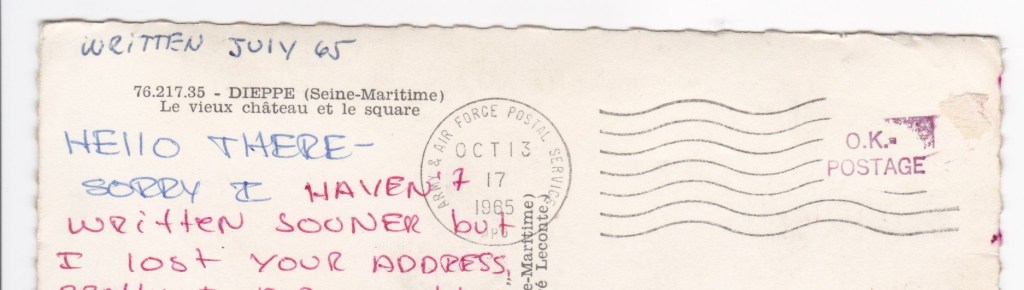 WRITTEN JULY 65
76.217.35 - DIEPPE (Seine-Maritime)
Le vieux château et le square
HELLO THERE-
SORRY I HAVEN'T
WRITTEN SOONER but
I lost YOUR ADDRESS,
ARMY & AIR FORCE POSTAL SERVICE
OCT 13
17
1965
O.K.-
POSTAGE
e-Maritime)
é Leconte,